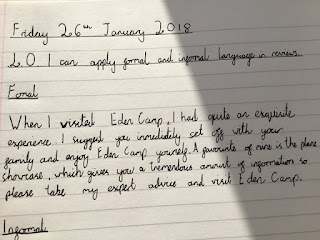 Friday 26th January 2018
L.O. I can apply formal and informal language in reviews.
Formal
When I visited Eden Camp, I had quite an exquisite
experience. I suggest you immediately set off with your
family and enjoy Eden Camp yourself. A favourite of mine is the plane
showcase, which gives you a tremendous amount of information so
please take my expert advice and visit Eden Camp.
Informal